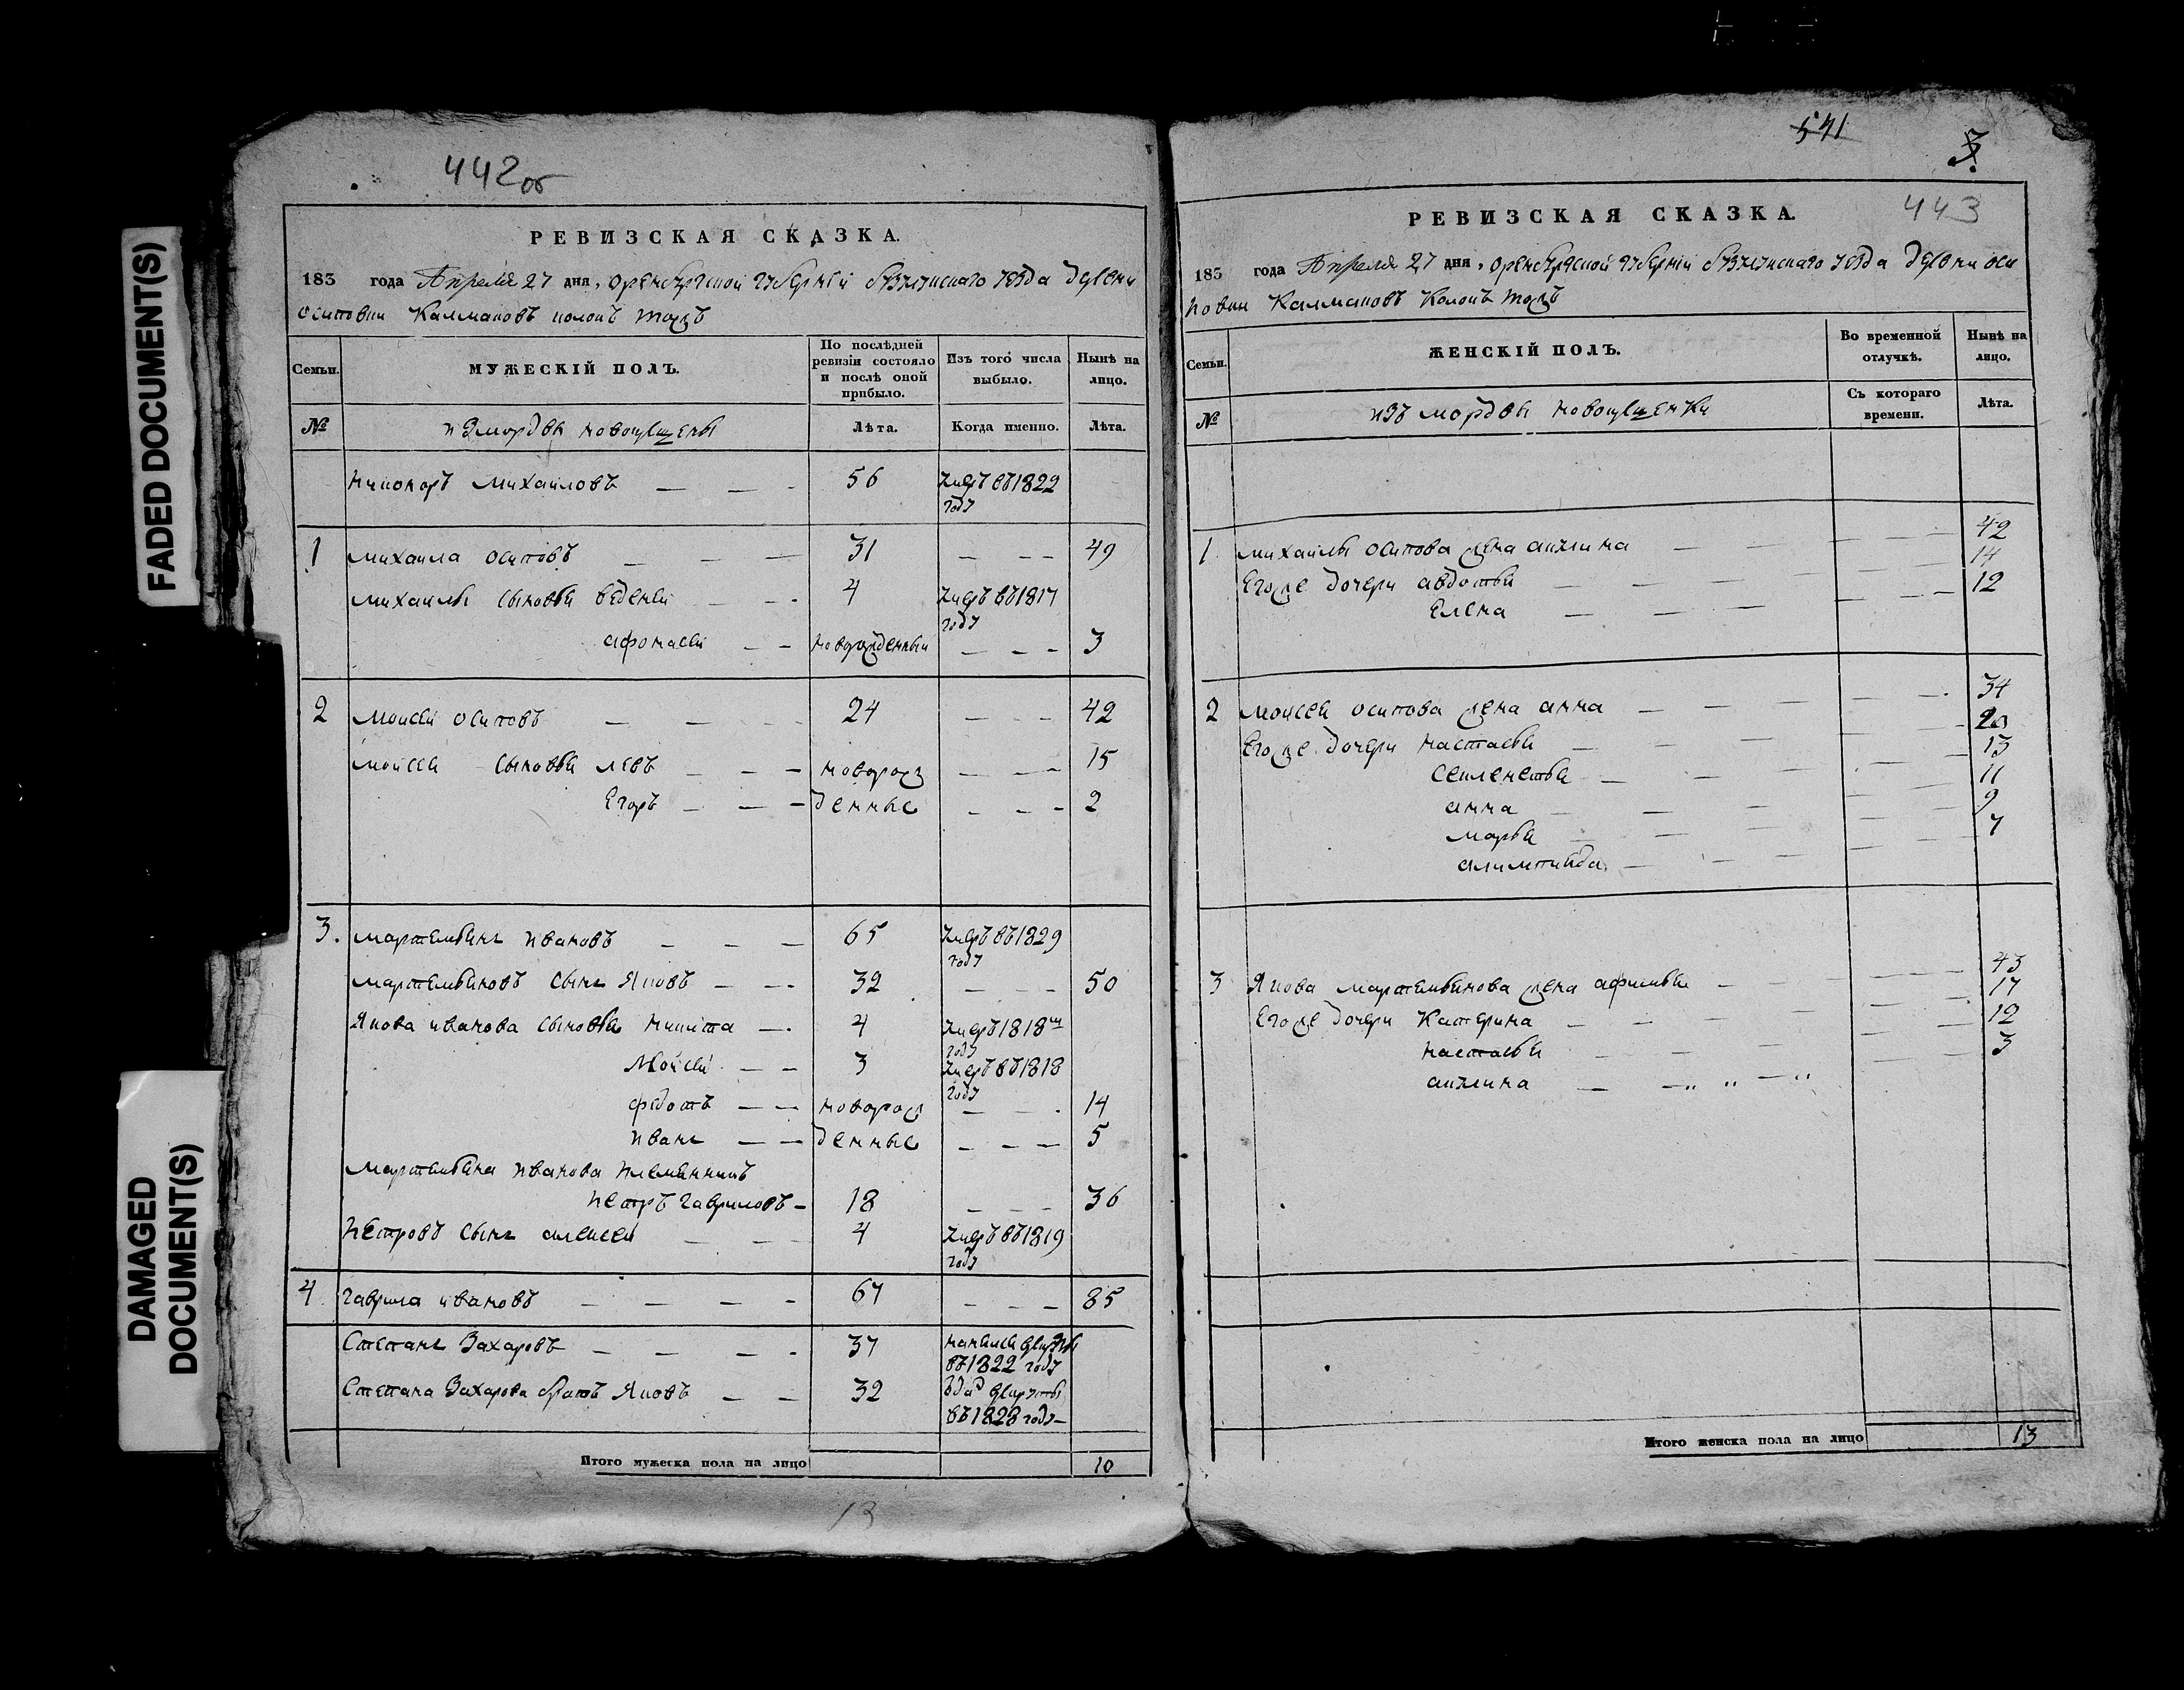 FADED DOCUMENT(S)
DAMAGED
DOCUMENT(S)
442об
РЕВИЗСКАЯ СКАЗКА.
183 года Апреля 27 дня, оренбургской губерніи бузулукскаго уезда деревни
осиповки Калмаковъ колокъ тожъ
Семьи.
МУЖЕСКІЙ ПОЛЪ.
По послѣдней ревизіи состояло и послѣ оной прибыло.
Изъ того числа выбыло.
Нынѣ на лицо.
№
измордвы новокрещены
Лѣта.
Когда именно.
Лѣта.
никоноръ михаиловъ 56 умеръ въ1822
году
1 михаила осиповъ 31 49
михаилы сыновья 4 умеръ въ1817
году
афонасей новорожденный 3
2 моисей осиповъ 24 42
моисея сыновья левъ новорож 15
Егоръ денные 2
3. мартемьянъ ивановъ 65 умеръ въ1829
году
мартемьяновъ сынъ Яковъ 32 50
Якова иванова сыновья никита 4 умеръ 1818
году
Мойсей 3 умеръ въ1818
году
федотъ новорож 14
иванъ денные 5
мартемьяна иванова племянникъ
петръ гавриловъ 18 36
петровъ сынъ алексей 4 умеръ въ1819
году
4 гаврила ивановъ 67 85
Степанъ Захаровъ 37
въ1822 году
Степана Захарова братъ Яковъ 32
въ1828 году
Итого мужеска пола на лицо 10
13
541
443
РЕВИЗСКАЯ СКАЗКА.
183 года Апреля 27 дня, оренбургской губерніи бузулукскаго уезда деревни оси
повки Калмаковъ Колокъ тожъ
Семьи.
ЖЕНСКІЙ ПОЛЪ.
Во временной отлучкѣ.
Нынѣ на лицо.
№
изъ мордвы новокрещенки
Съ котораго времени.
Лѣта.
1 михаилы осипова жена акилина 42
Егоже дочери авдотья 14
Елена 12
2 моисея осипова жена анна 34
Егоже дочери настасья 20
13
анна 11
марья 9
7
3 Якова мартемьянова жена афимья 43
Егоже дочери Катерина 17
настасья 12
акилина 3
Итого женска пола на лицо 13